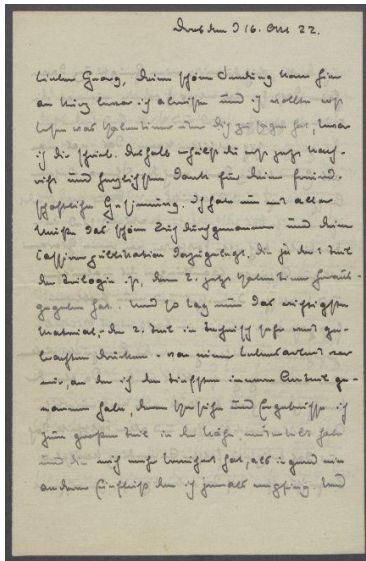 Dresden d 16. Okt 22.
Lieber Georg, Deine schöne Sendung kam hier
an kurz bevor ich abreiste und ich wollte erst
lesen was Valentiner über dich zu sagen hat, bevor
ich dir schrieb. Deshalb erhältst du erst jetzt Nach-
richt und herzlichsten Dank für deine freund-
schaftliche Gesinnung. Ich habe nun mit aller
Muße das schöne Buch durchgenommen und deine
dazugelegt, die ja der 1. Teil
der Trilogie ist, deren 2. jetzt Valentiner heraus-
gegeben hat. Und so lag nun das wichtigste
Material, der 2. Teil in technisch sehr gut ge-
brachten Drucken, von einer Lebensarbeit vor
mir, an der ich den tiefsten inneren Anteil ge-
nommen habe, deren Versuche und Ergebnisse ich
zum großen Teil in der Nähe miterlebt habe
und die mich mehr bereichert hat, als irgend ein
anderer Einfluß den ich jemals empfing. Und